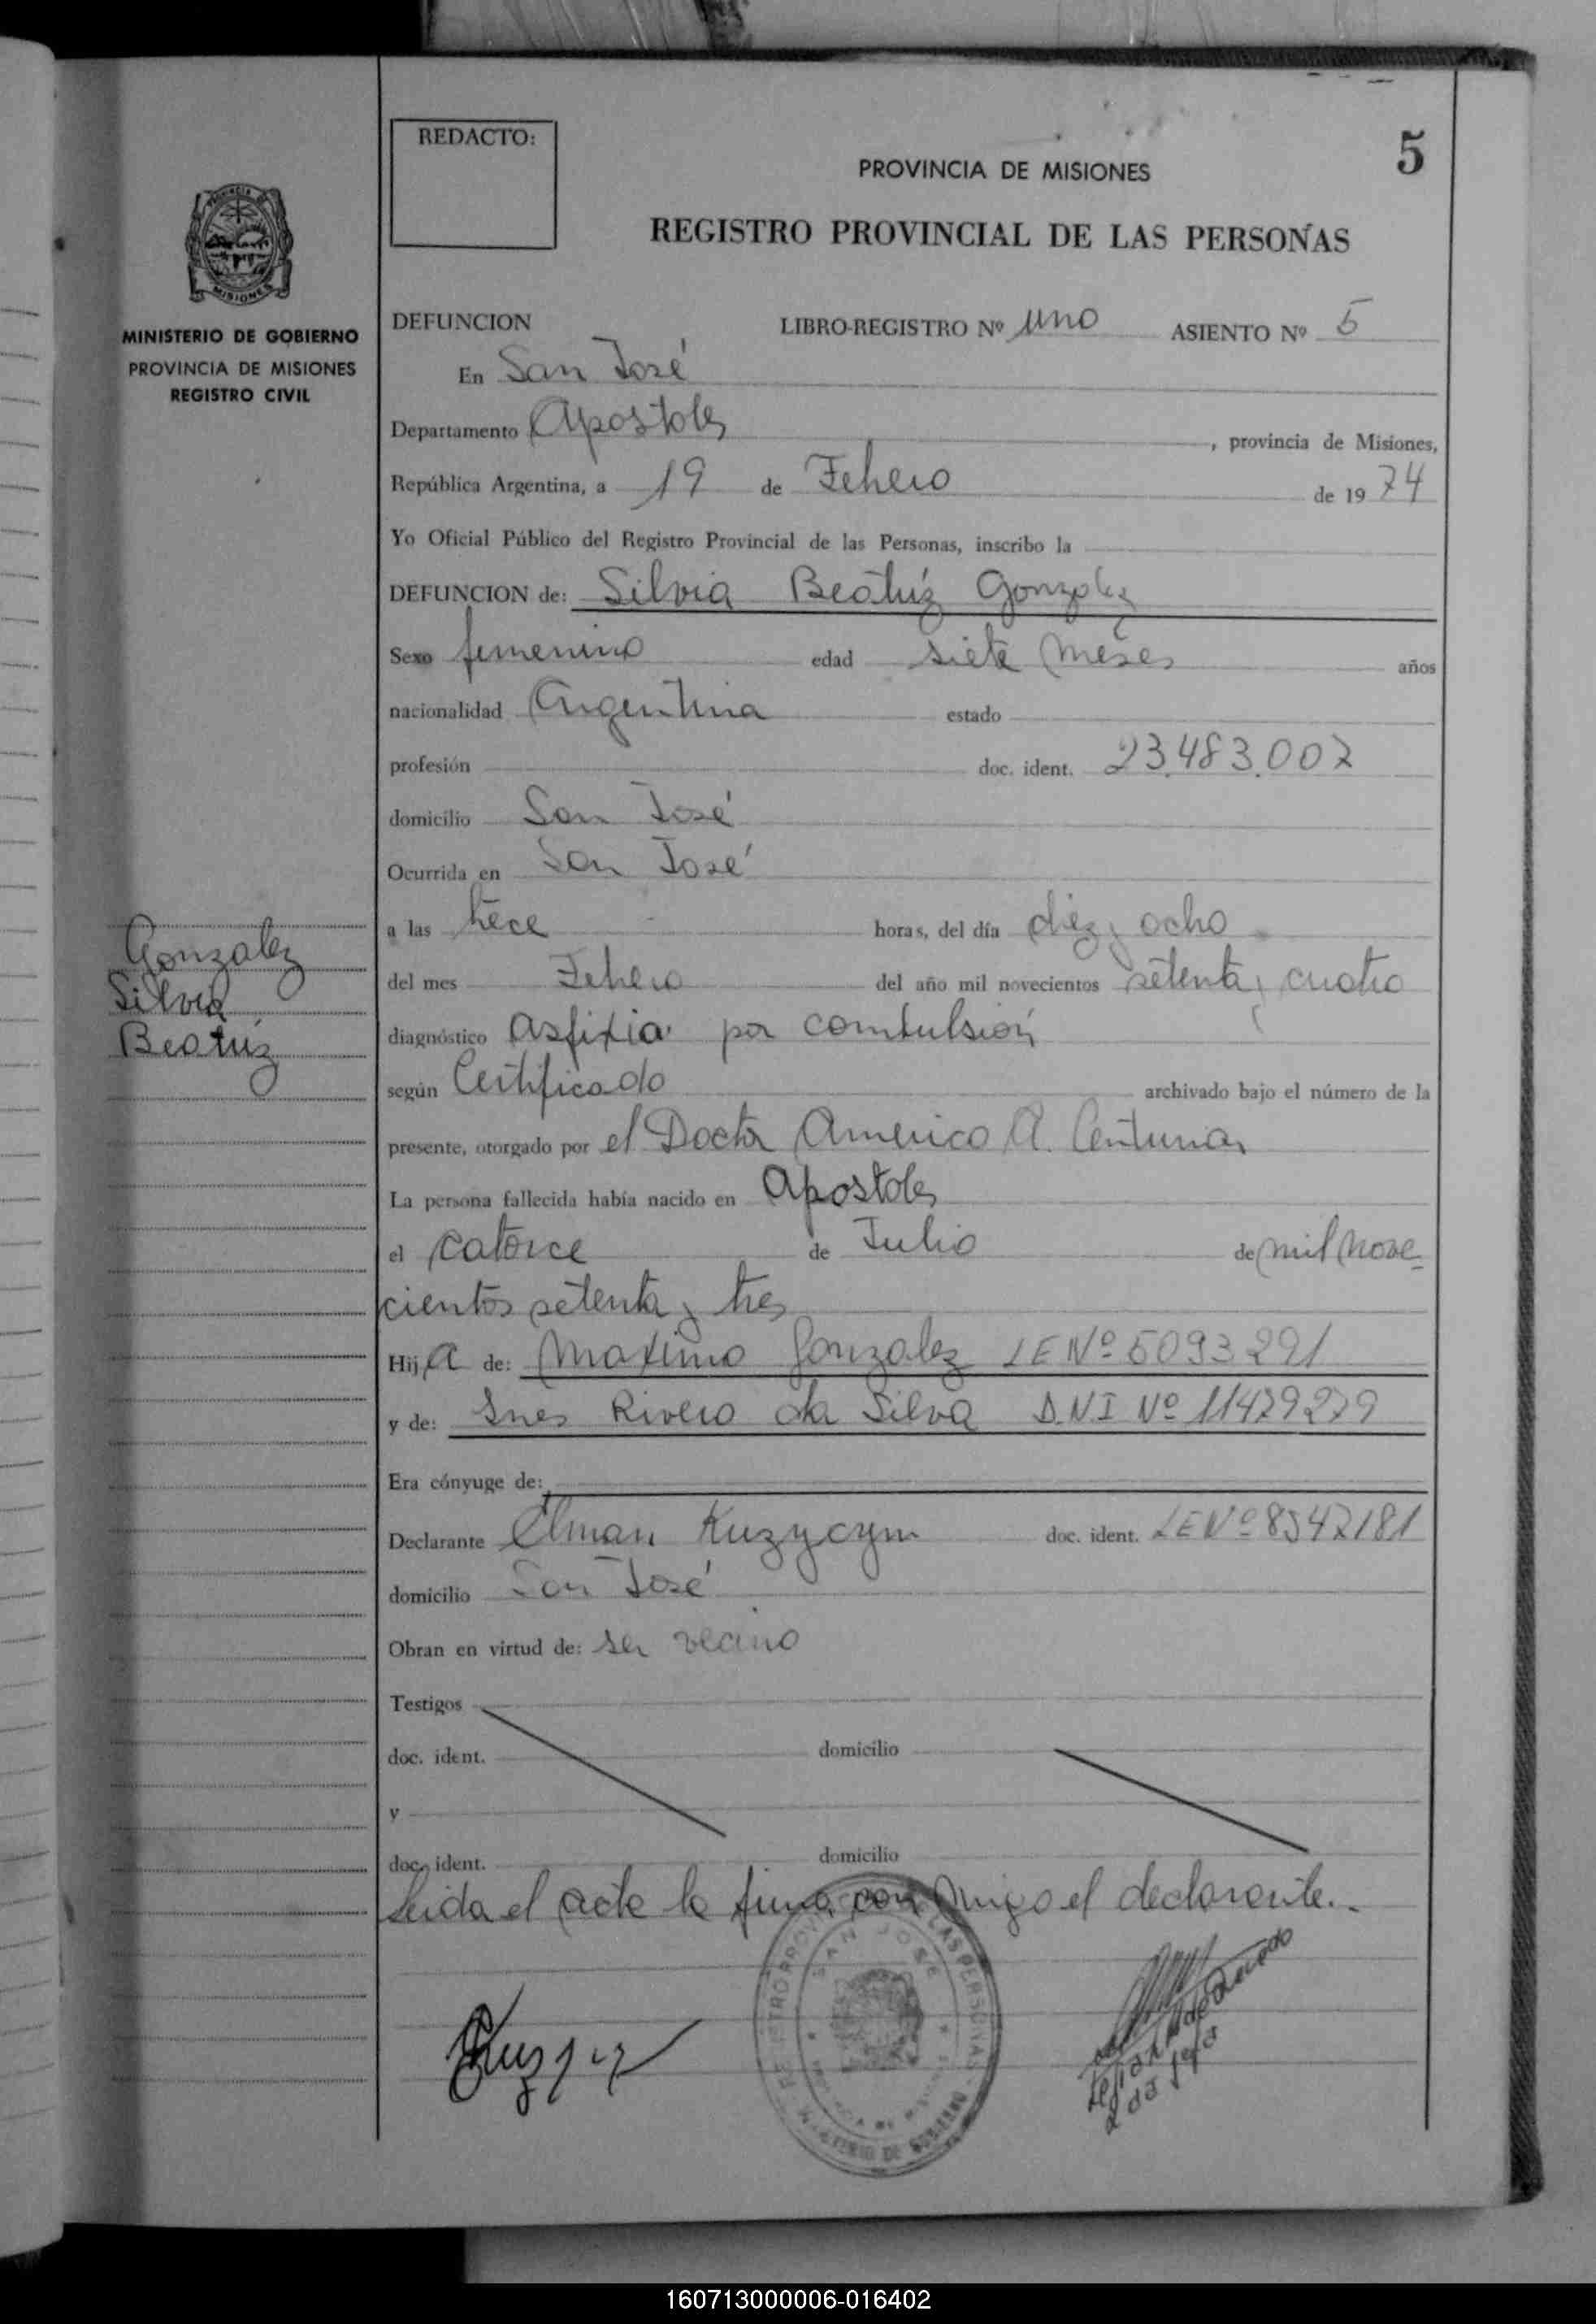 REDACTO:
5
PROVINCIA DE MISIONES
REGISTRO PROVINCIAL DE LAS PERSONAS
MISIONES
MINISTERIO DE GOBIERNO
PROVINCIA DE MISIONES
REGISTRO CIVIL
DEFUNCION LIBRO-REGISTRO Nº uno ASIENTO Nº 5
En San José
Departamento Apostoles, provincia de Misiones,
República Argentina, a 19 de Febrero de 1974
Yo Oficial Público del Registro Provincial de las Personas, inscribo la
DEFUNCION de: Silvia Beatríz Gonzalez
Sexo femenino edad siete meses años
nacionalidad Argentina estado
profesión doc. ident. 23.483.007
domicilio San José
Ocurrida en San José
a las trece horas, del día diez y ocho
del mes Febrero del año mil novecientos setenta y cuatro
Gonzalez
Silvia
Beatríz
diagnóstico asfixia por combulsión
según Certificado archivado bajo el número de la
presente, otorgado por el Doctor Americo A. Centurion
La persona fallecida había nacido en Apostoles
el catorce de Julio de mil nove
cientos setenta y tres
Hija de: Maximo Gonzalez LE Nº 5093291
y de: Ines Rivero da Silva D.N.I Nº 11479279
Era cónyuge de:
Declarante Elman Kuzycym doc. ident. LE Nº 8547181
domicilio San José
Obran en virtud de: ser vecino
Testigos
doc. ident. domicilio
y
doc. ident. domicilio
Leida el acta la firma con migo el declarante..
SAN JOSE
160713000006-016402